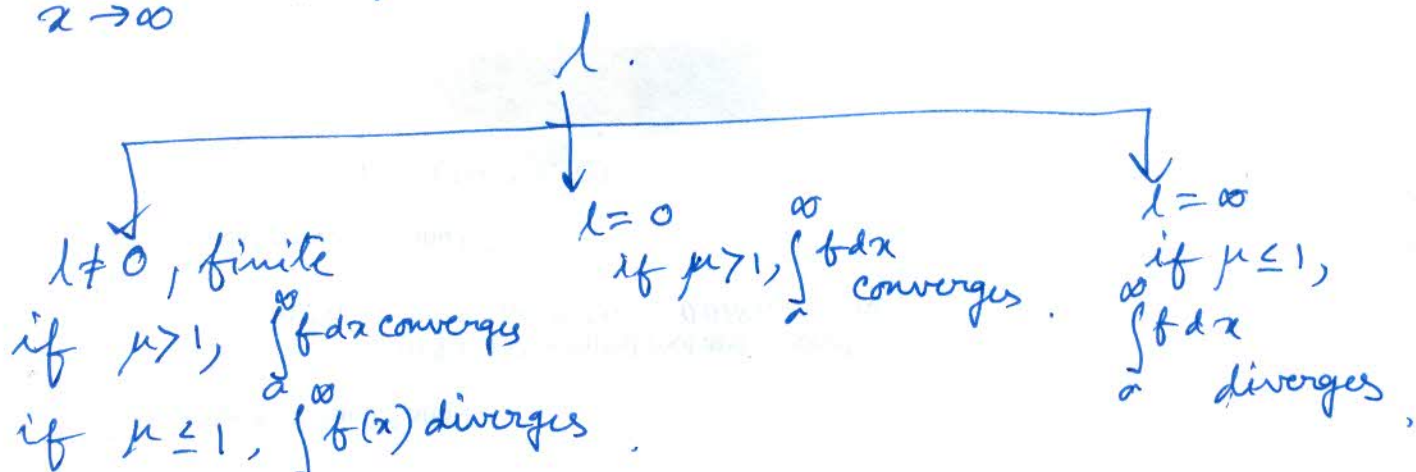 x → ∞
l .
l ≠ 0, finite
if μ > 1, ∫_a^∞ f dx converges
if μ ≤ 1, ∫^∞ f(x) diverges .
l = 0
if μ > 1, ∫_a^∞ f dx
converges .
l = ∞
if μ ≤ 1,
∫_a^∞ f dx
diverges ,